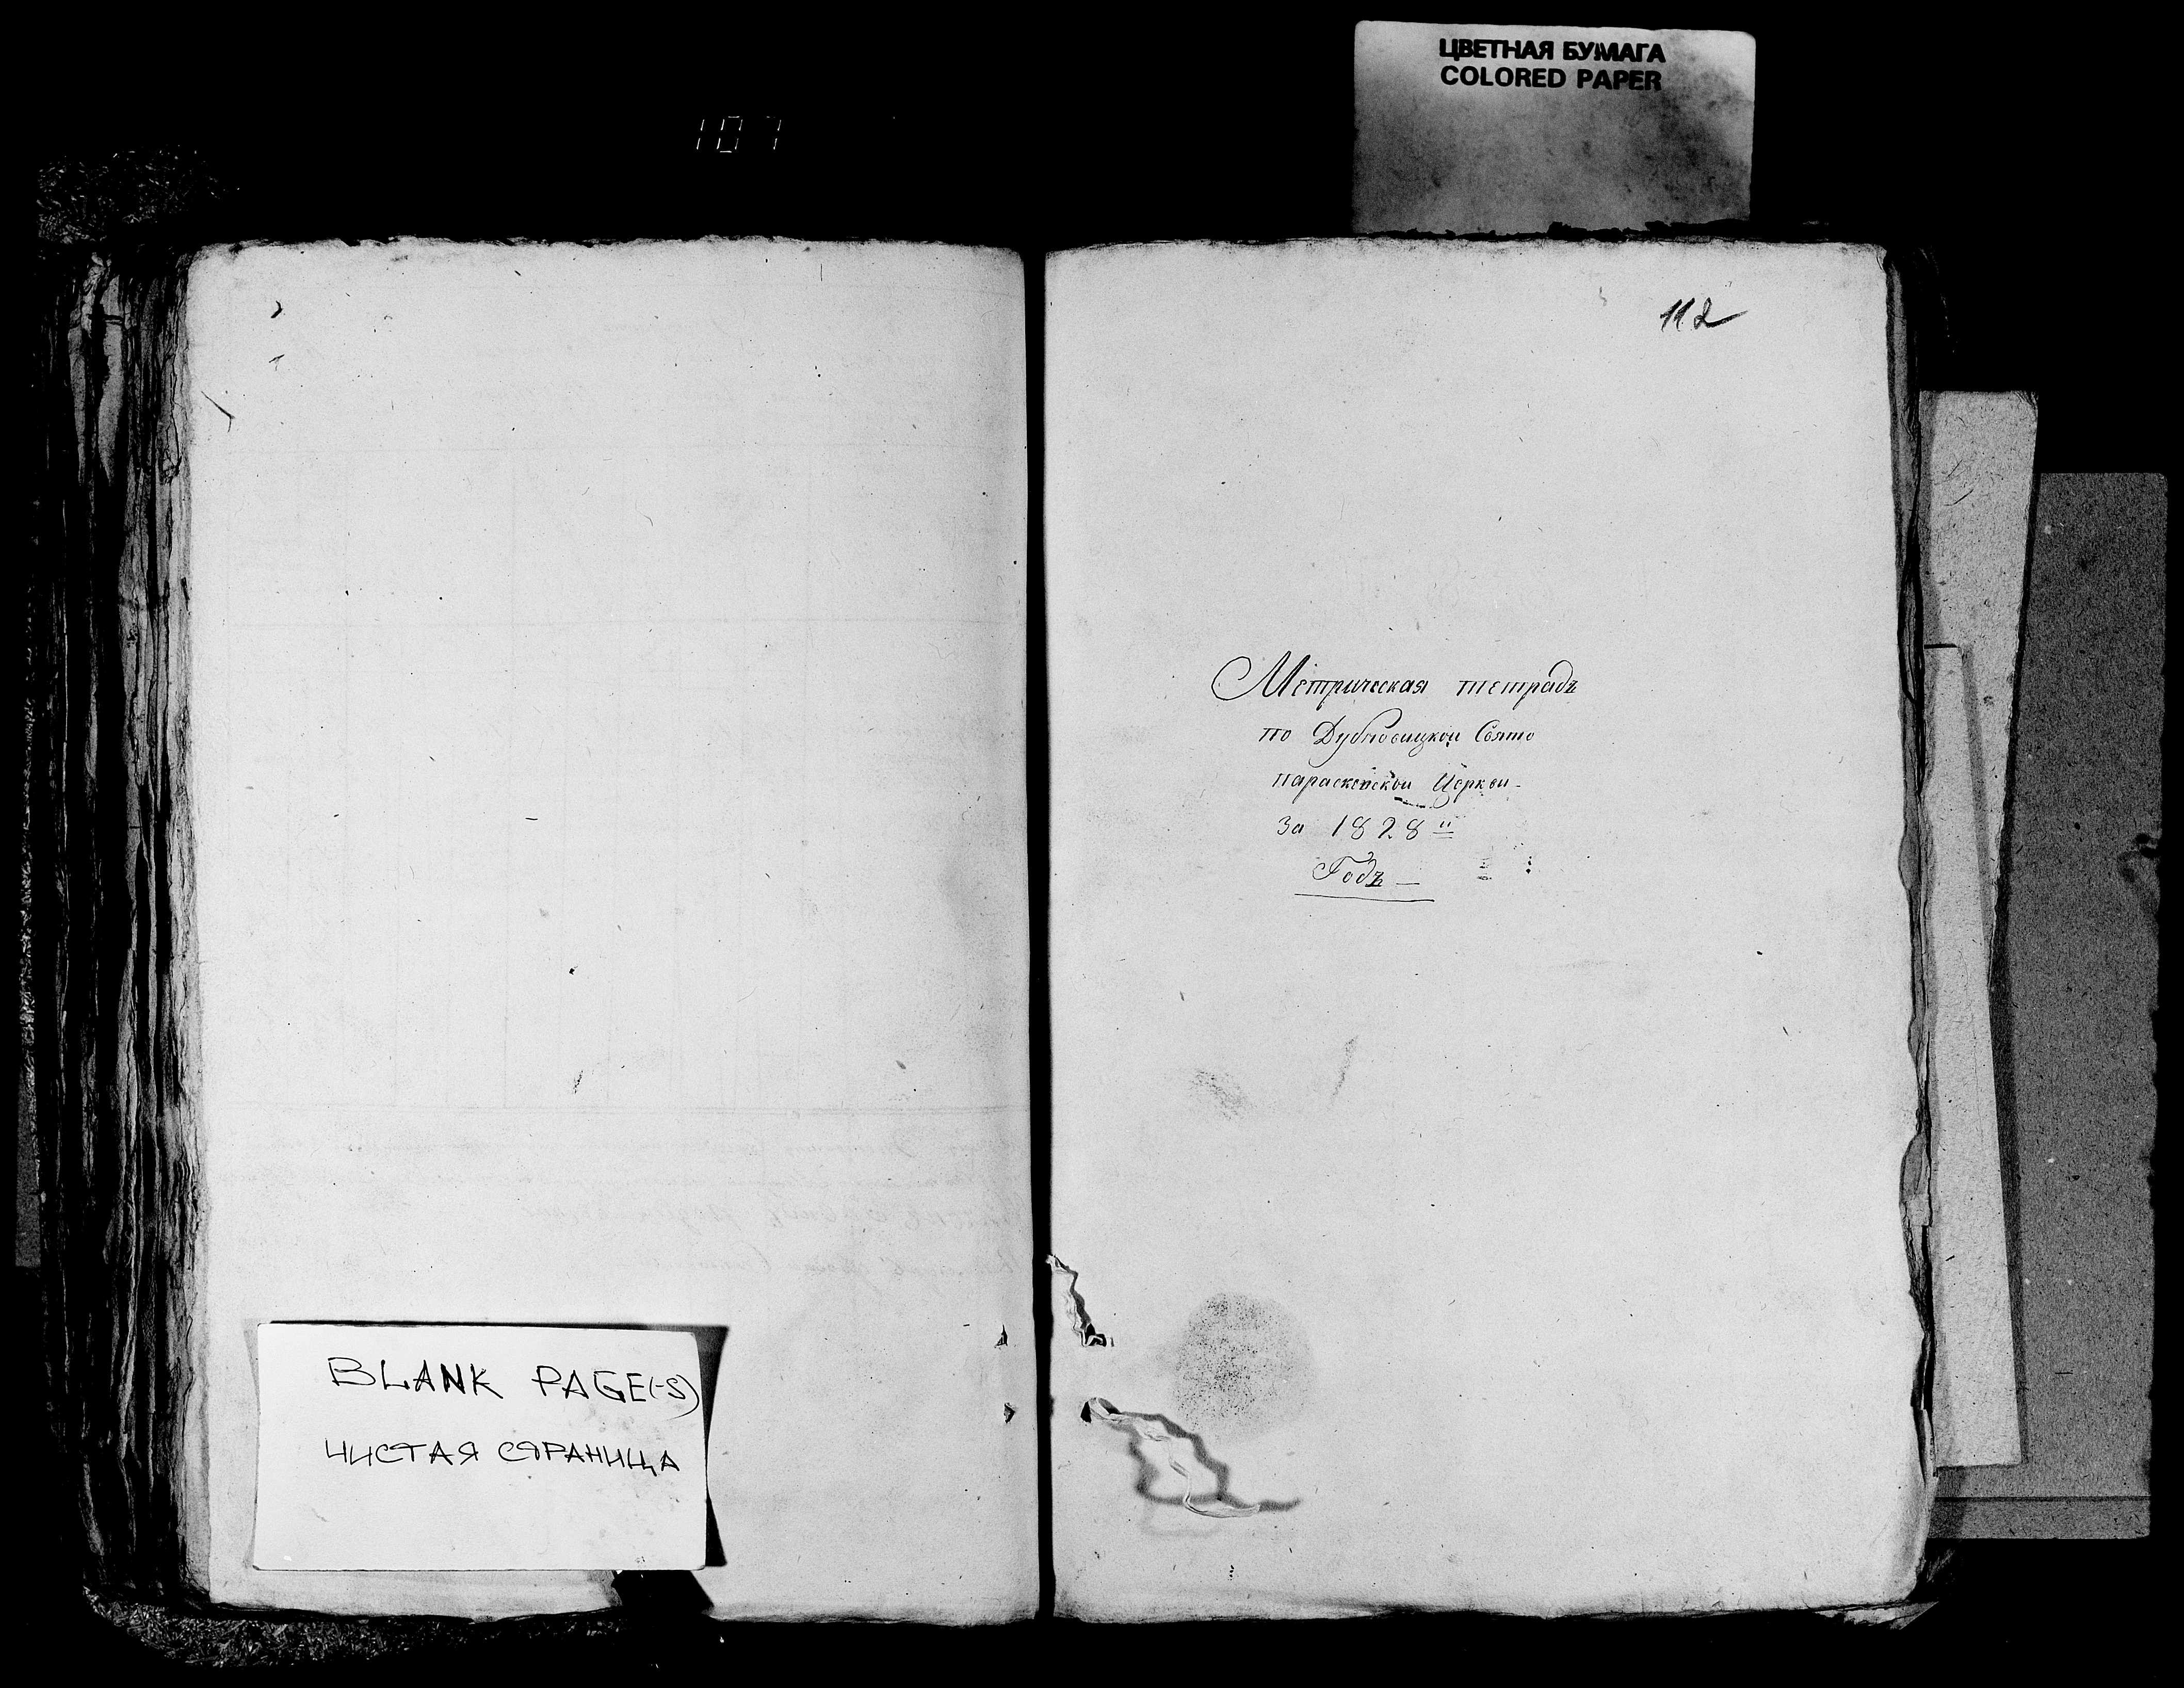 ЦВЕТНАЯ БУМАГА
COLORED PAPER
107
112
Метрическая тетрадь
по Дубновицкой Свято
параскевской Церкви -
за 1828 й
Годъ —
BLANK PAGE(-S)
ЧИСТАЯ СТРАНИЦА